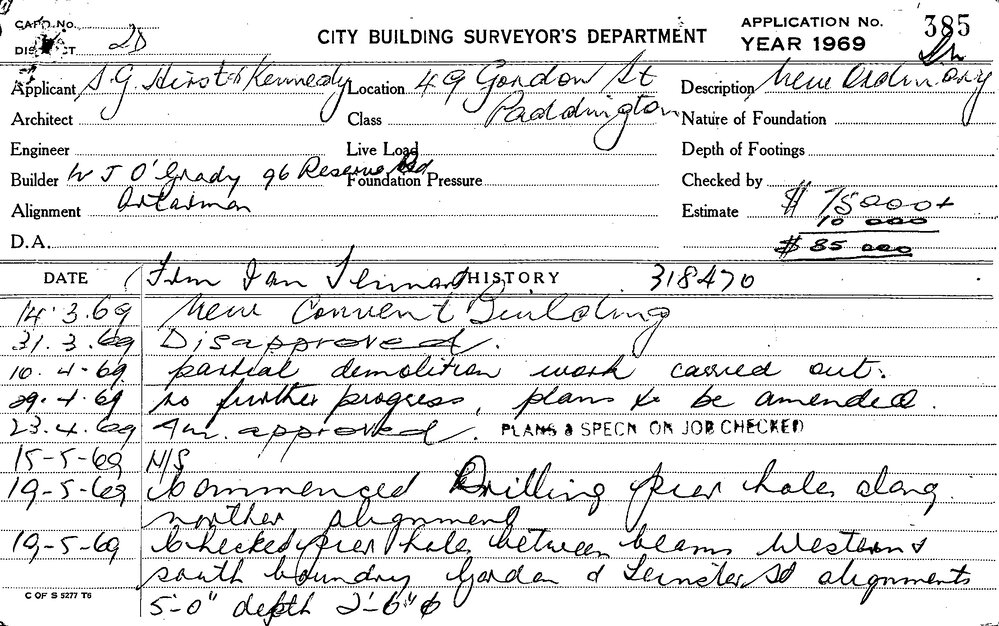 CARD No.
DISTRICT 2D
CITY BUILDING SURVEYOR'S DEPARTMENT
APPLICATION No. 385
YEAR 1969
Applicant S.G. Hirst & Kennedy
Location 49 Gordon St Paddington
Description New Ordinary
Architect
Class
Nature of Foundation
Engineer
Live Load
Depth of Footings
Builder W J O'Grady 96 Reserve Rd Artarmon
Foundation Pressure
Checked by
Alignment
Estimate $ 75000+
10 000
$ 85 000
D.A.
DATE HISTORY 318470
14.3.69 New Convent Building
31.3.69 Disapproved.
10.4.69 partial demolition work carried out.
29.4.69 no further progress, plans to be amended.
23.4.69 Am. approved. PLANS & SPECN ON JOB CHECKED
15-5-69 N/S
19-5-69 Commenced Drilling pier holes along
norther alignment
19-5-69 Checked pier holes between beams Western &
south boundry Gordon & Leinster St alignments
5'-0" depth 2'-6" ϕ
C OF S 5277 T6